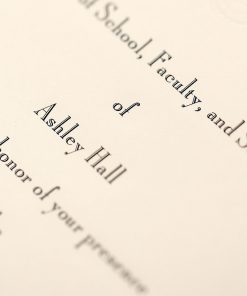 School, Faculty, and S
of
Ashley Hall
honor of your presence